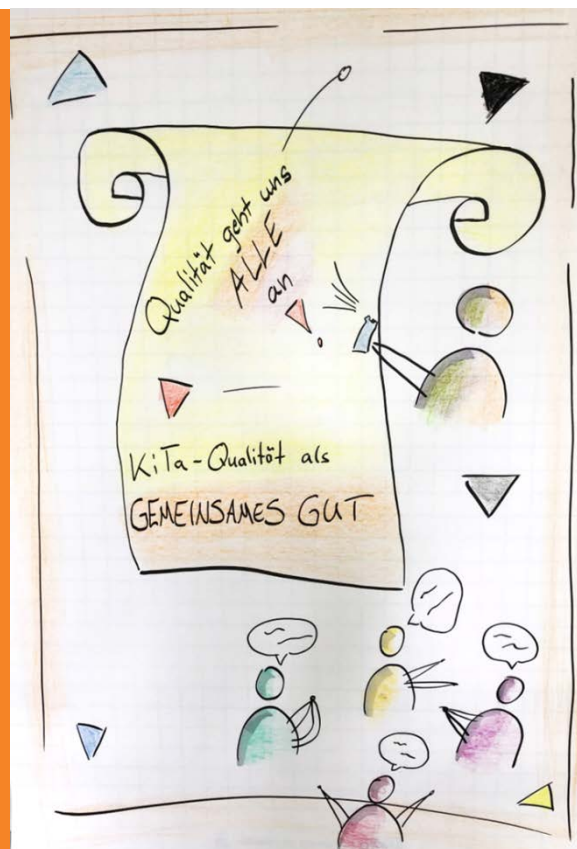 Qualität geht uns
ALLE
an
KiTa-Qualität als
GEMEINSAMES GUT